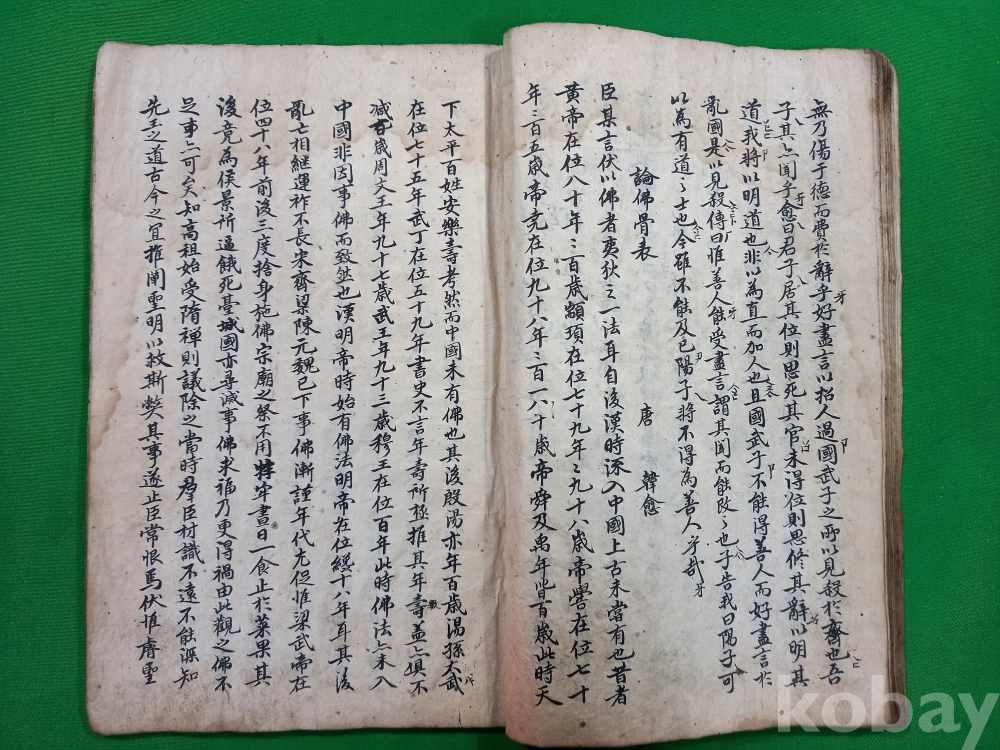 無乃傷于德而費於辭乎好盡言以招人過國武子之所以見殺於齊也吾
子其亦聞乎愈曰君子居其位則思死其官未得位則思修其辭以明其
道我將以明道也非以為直而加人也且國武子不能得善人而好盡言於
亂國是以見殺傳曰惟善人能受盡言謂其聞而能改之也子告我曰陽子可
以為有道之士也今雖不能及已陽子將不得為善人乎哉
論佛骨表 唐 韓愈
臣某言伏以佛者夷狄之一法耳自後漢時流入中國上古未嘗有也昔者
黃帝在位八十年三百歲顓頊在位七十九年之九十八歲帝嚳在位七十
年三百五歲帝堯在位九十八年三百一八十歲帝舜及禹年皆百歲此時天
下太平百姓安樂壽考然而中國未有佛也其後殷湯亦年百歲湯孫太戊
在位七十五年武丁在位五十九年書史不言年壽所極推其年數盖亦俱不
减百歲周文王年九十七歲武王年九十三歲穆王在位百年此時佛法亦未入
中國非因事佛而致然也漢明帝時始有佛法明帝在位纔十八年耳其後
亂亡相継運祚不長宋齊梁陳元魏已下事佛漸謹年代尤促惟梁武帝在
位四十八年前後三度捨身施佛宗廟之祭不用牲牢晝日一食止於菜果其
後竟為侯景所逼餓死臺城國亦尋滅事佛求福乃更得禍由此觀之佛不
足事亦可矣知高祖始受隋禅則議除之當時羣臣材識不遠不能深知
先王之道古今之宜推闡聖明以救斯弊其事遂止臣常恨焉伏惟睿聖
kobay